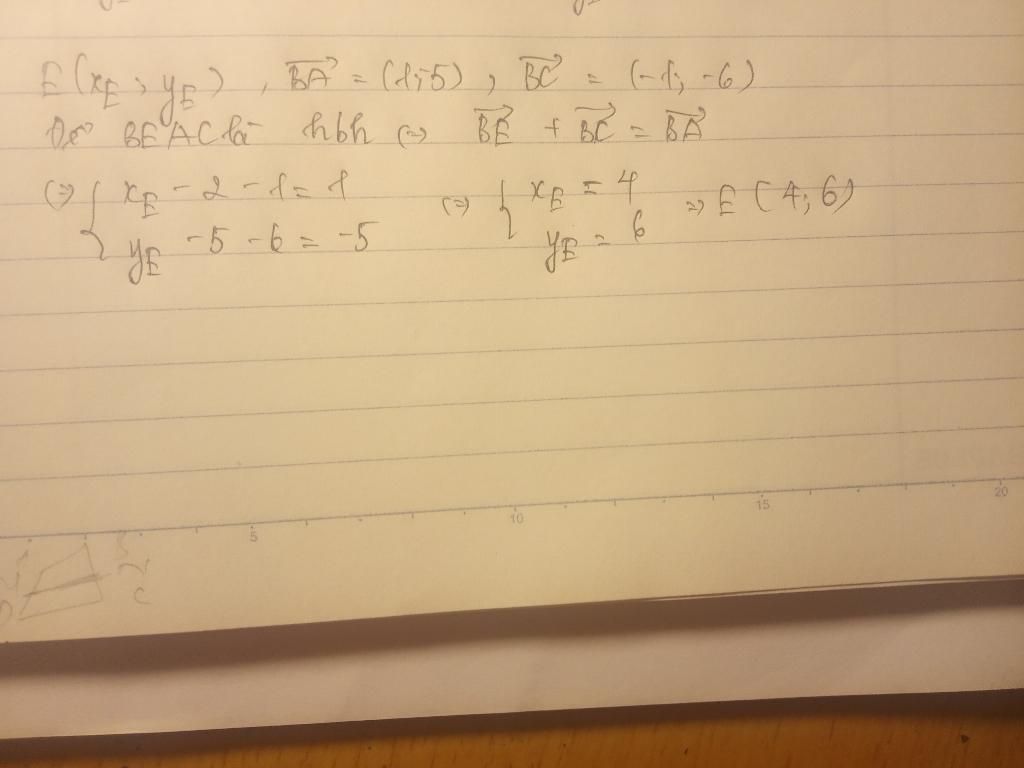 E(x_E; y_E), \overrightarrow{BA} = (1; -5), \overrightarrow{BC} = (-1; -6)
Để BEAC là hbh (=) \overrightarrow{BE} + \overrightarrow{BC} = \overrightarrow{BA}
(=) { x_E - 2 - 1 = 1 (=) { x_E = 4 => E(4; 6)
y_E - 5 - 6 = -5 y_E = 6
5 10 15 20
C